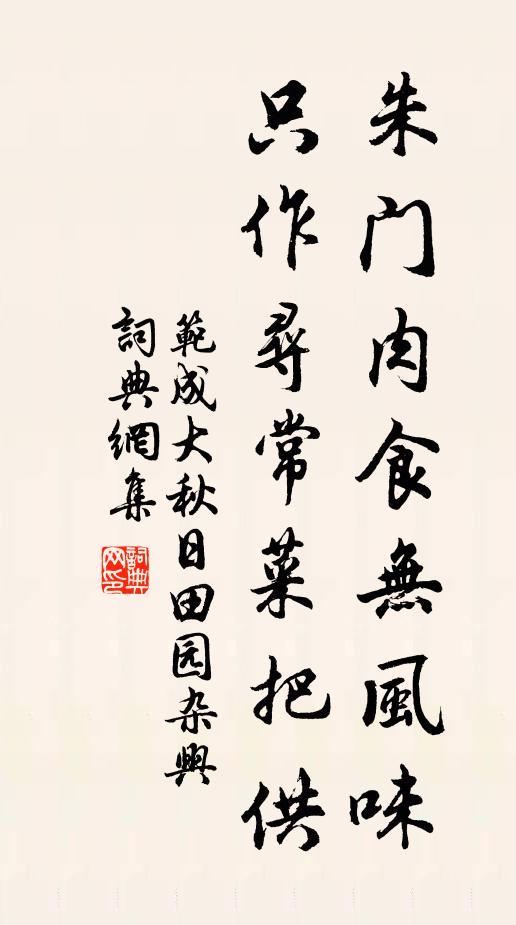 朱門肉食無風味
只作尋常菜把供
範成大秋日田园杂興
詞典網集
詞典网印